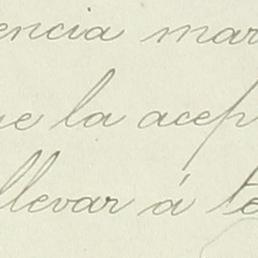 encia mar
ue la acep
llevar á te